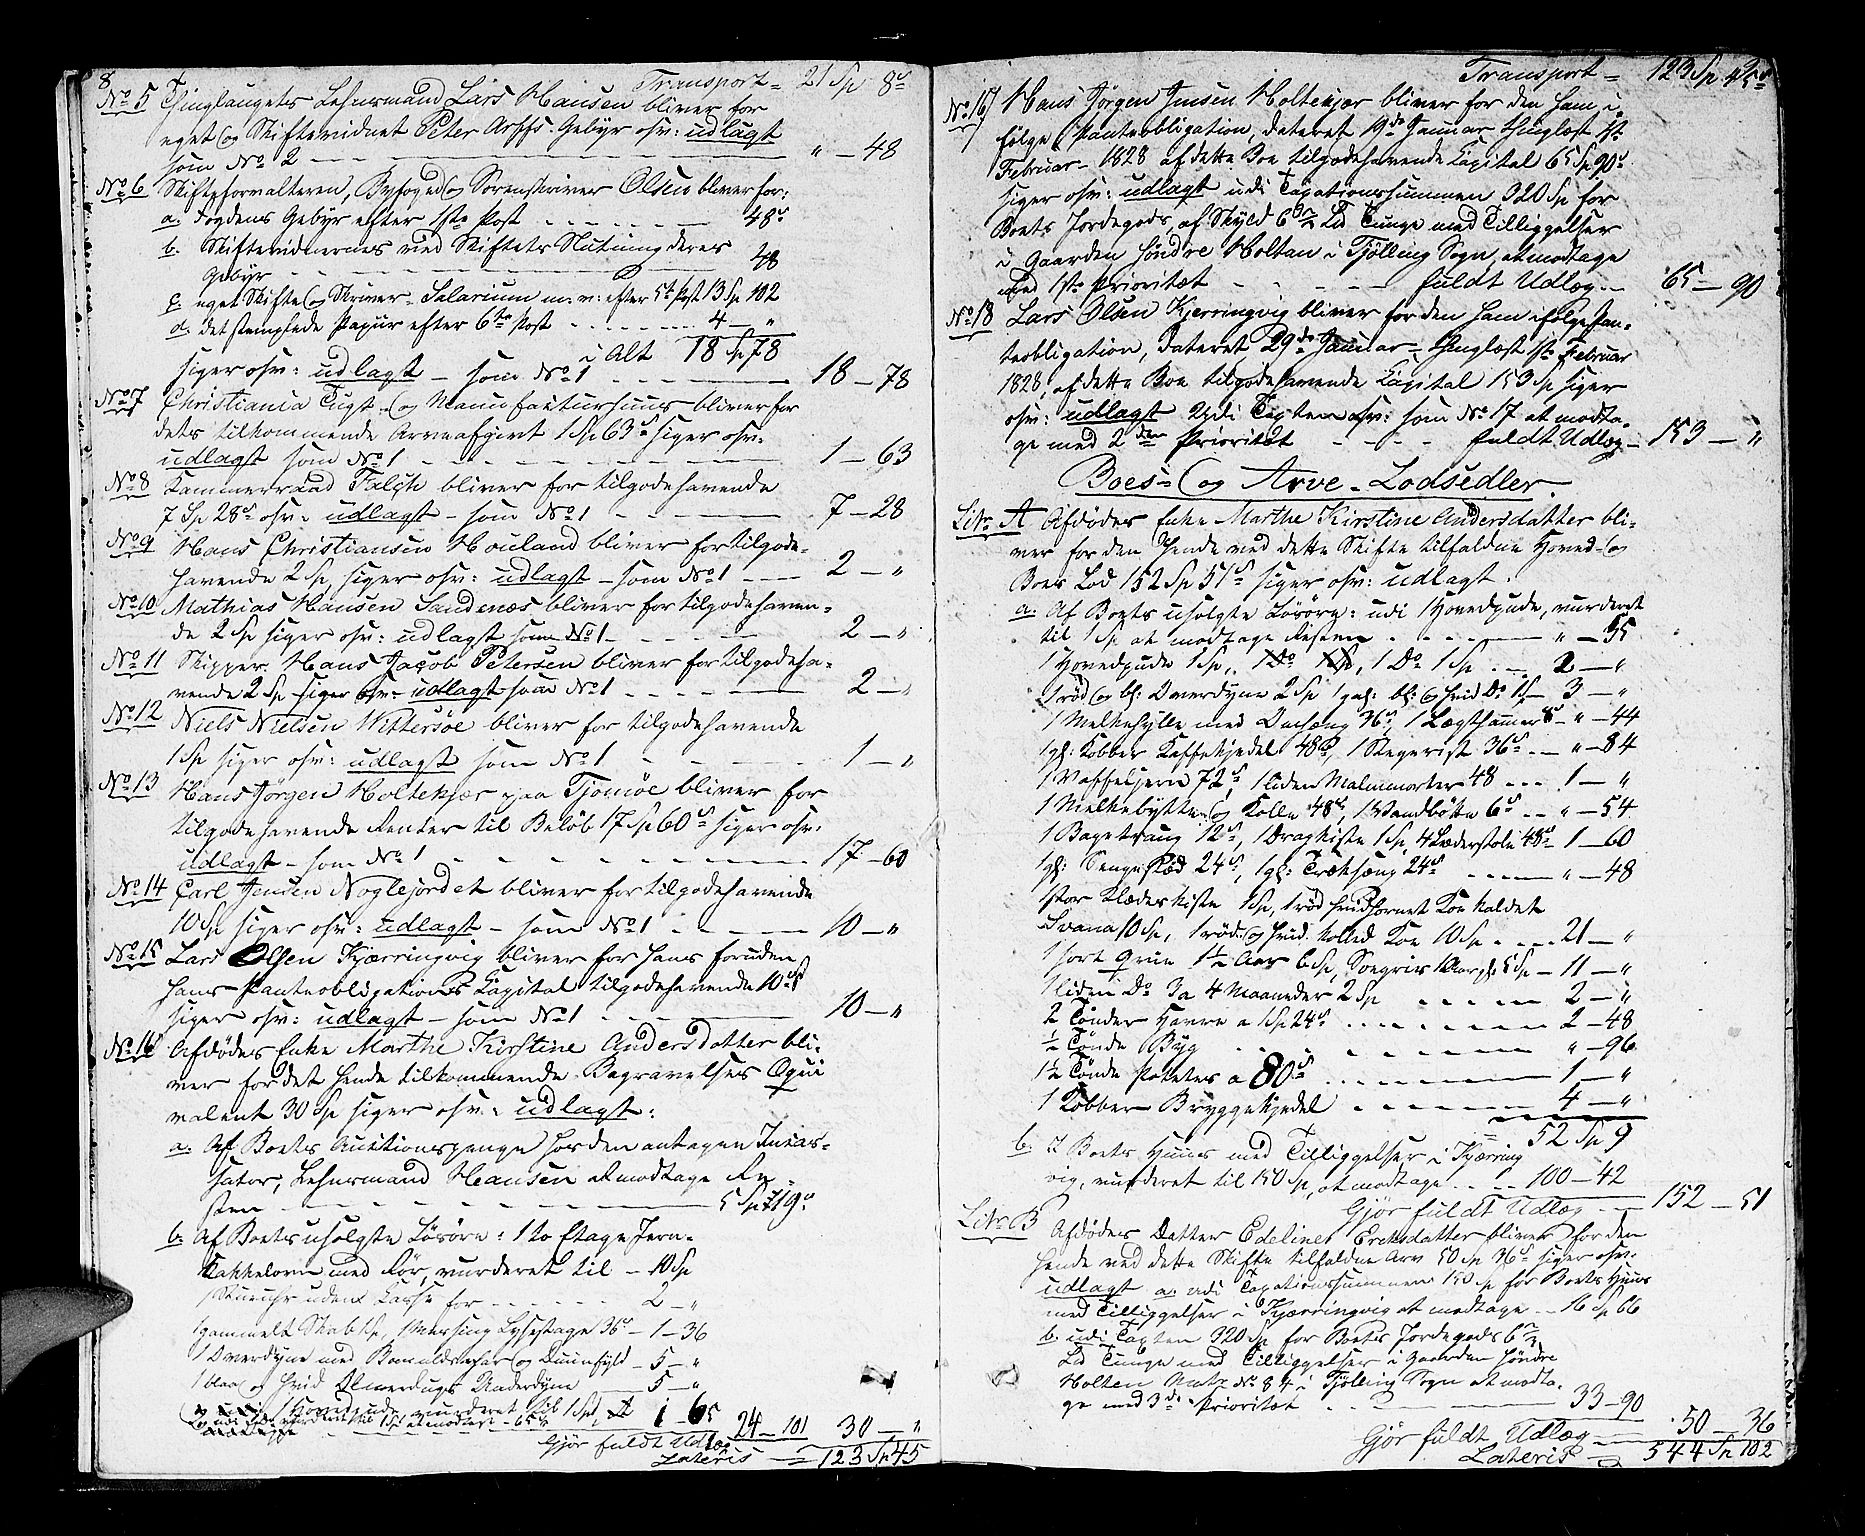 8 Transport = 21 Sp 8s
No 5 Thinglaugets Lehnsmand Lars Hansen bliver for
eget og Skiftevidnet Peter Arffs Gebyr osv: udlagt
som No 2 - - - " - 48
No 6 Skifteforvalteren, Byfoged og Sorenskriver Olsen bliver for:
a. Fogdens Gebyr efter 1ste Post - - - 48s
b. Skiftevidnernes ved Skiftets Slutning deres
Gebyr - - - 48
c. eget Skifte og Skriver-Salarium m: v: efter 5te Post 13 Sp 102
d. det stemplede Papiir efter 6te Post - - - 4 - "
i Alt 18 Sp 78
siger osv: udlagt - som No 1 - - - 18 - 78
No 7 Christiania Tugt- og Manufacturhuus bliver for
dets tilkommende Arveafgivt 1 Sp 63s siger osv:
udlagt som No 1 - - - 1 - 63
No 8 Kammerraad Falch bliver for tilgodehavende
7 Sp 28s osv: udlagt - som No 1 - - - 7 - 28
No 9 Hans Christiansen Houland bliver for tilgode-
havende 2 Sp, siger osv: udlagt - som No 1 - - - 2 - "
No 10 Mathias Hansen Sandenæs bliver for tilgodehaven-
de 2 Sp siger osv: udlagt som No 1 - - - 2 - "
No 11 Skipper Hans Jacob Petersen bliver for tilgodeha-
vende 2 Sp siger osv: udlagt som No 1 - - - 2 - "
No 12 Niels Nielsen Wittersøe bliver for tilgodehavende
1 Sp siger osv: udlagt som No 1 - - - 1 - "
No 13 Hans Jørgen Holtekjær paa Tjømøe bliver for
tilgodehavende Renter til Beløb 17 Sp 60s siger osv:
udlagt - som No 1 - - - 17 - 60
No 14 Carl Jensen Noglejordet bliver for tilgodehavende
10 Sp siger osv: udlagt - som No 1 - - - 10 - "
No 15 Lars Olsen Kjærringvig bliver for hans foruden
hans Panteobligations Capital tilgodehavende 10 Sp
siger osv: udlagt - som No 1 - - - 10 - "
No 16 Afdødes Enke Marthe Kirstine Andersdatter bli-
ver for det hende tilkommende Begravelses Eqvi
valent 30 Sp siger osv: udlagt:
a. Af Boets Auctionspenge hos den antagen Incas-
sator, Lehnsmand Hansen at modtage Re-
sten - - - 5 Sp 19s
b. Af Boets usolgte Løsøre: 1 to Etage Jern-
Kakkelovn med Rør, vurderet til - 10 Sp
1 Stueuhr uden Kasse for - - - 2 - "
1 gammelt Skab 1 Sp, 1 Messing Lysestage 36s - 1 - 36
1 Overdyne med Bomuldsvaar og Duunfyld - 5 - "
1 blaa og hvid Olmerdugs Underdyne - 5 - "
1 Hovedpude vurderet til 1 Sp 1 - 65
24 - 101 30 - "
Gjør fuldt Udlæg
Lateris = 123 Sp 45
Transport = 123 Sp 45s
No 17 Hans Jørgen Jensen Holtekjær bliver for den ham i
følge Panteobligation, dateret 19de Januar, thinglæst 1ste
Februar 1828 af dette Boe tilgodehavende Capital 65 Sp 90s
siger osv: udlagt udi Taxationssummen 320 Sp for
Boets Jordegods, af Skyld 6 1/2 Lid Tunge med Tilliggelser
i Gaarden Søndre Holtan i Tjølling Sogn, at modtage
med 1ste Prioritæt - - - fuldt Udlæg - - 65 - 90
No 18 Lars Olsen Kjerringvig bliver for den ham ifølge Pan-
teobligation, dateret 29de Januar, thinglæst 1ste Februar
1828, af dette Boe tilgodehavende Capital 153 Sp siger
osv: udlagt udi Taxten osv: som No 17 at modta-
ge med 2den Prioritæt - - - fuldt Udlæg - 153 - "
Boes- og Arve-Lodsedler.
Litr. A Afdødes Enke Marthe Kirstine Andersdatter bli-
ver for den hende ved dette Skifte tilfaldne Hoved- og
Boes Lod 152 Sp 51s siger osv: udlagt:
a. Af Boets usolgte Løsøre: udi 1 Hovedpude, vurderet
til 1 Sp at modtage Resten - - - " - 55
1 Hovedpude 1 Sp, 1 Do 1 Sp, 1 Do 1 Sp - - 2 - "
1 rød og bl: Overdyne 2 Sp 1 gal: bl: og hvid Do 1 Sp - 3 - "
1 Melkehylle med Ophæng 36s, 1 Lægthammer 8s - " - 44
1 gl: Kobber Kaffekjedel 48s, 1 Stegerist 36s - - " - 84
1 Vaffeljern 72s, 1 liden Malmmorter 48 - - - 1 - "
1 Melkebytte og Kolle 48s, 1 Vandbøtte 6s - - " - 54
1 Bagetraug 12s, 1 Dragkiste 1 Sp, 4 Læderstole 48s 1 - 60
1 gl: Sengested 24s, 1 gl: Træksæng 24s - - - " - 48
1 stor Klædeskiste 1 Sp, 1 rød hvidhornet Koe kaldet
Svana 10 Sp, 1 rød og hvid kolled Koe 10 Sp - - - 21 - "
1 sort Qvie 1 1/2 Aar 6 Sp, Soegris 1 Aar gl: 5 Sp - 11 - "
1 liden Do 3 a 4 Maaneder 2 Sp - - - 2 - "
2 Tønder Havre a 1 Sp 24s - - - 2 - 48
1/2 Tønde Byg - - - " - 96
1 1/2 Tønde Poteter a 80s - - - 1 - "
1 Kobber Bryggekjedel - - - 4 - "
52 Sp 9
b. I Boets Huus med Tilliggelser i Kjærring
vig, vurderet til 150 Sp, at modtage - - - 100 - 42
Gjør fuldt Udlæg - - 152 - 51
Litr. B Afdødes Datter Edeline Ericksdatter bliver for den
hende ved dette Skifte tilfaldne Arv 50 Sp 36s siger osv:
udlagt a. udi Taxationssummen 150 Sp for Boets Huus
med Tilliggelser i Kjærringvig at modtage - - 16 Sp 66
b. udi Taxten 320 Sp for Boets Jordegods 6 1/2
Lid Tunge med Tilliggelser i Gaarden Søndre
Holten Matr. No 84 i Tjølling Sogn at modta-
ge med 3de Prioritæt - - - 33 - 90
Gjør fuldt Udlæg - - 50 - 36
Lateris = 544 Sp 102